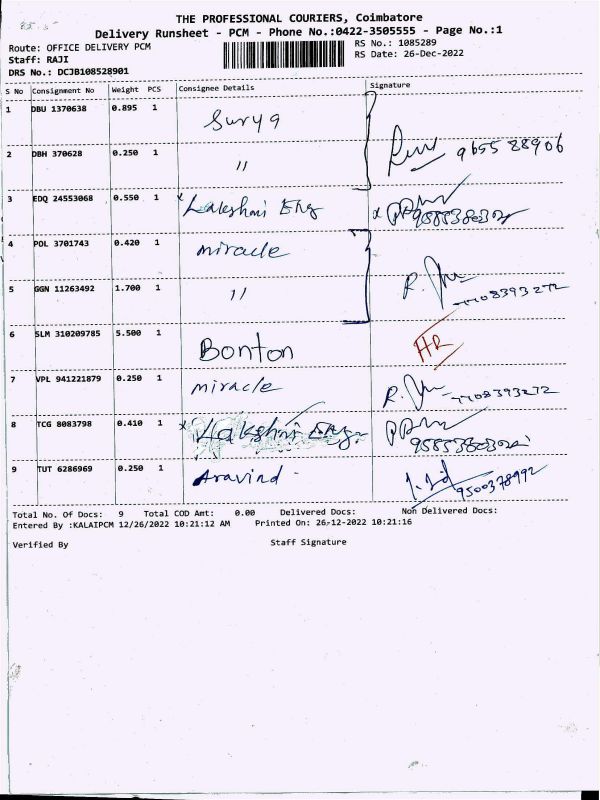 THE PROFESSIONAL COURIERS, Coimbatore
Delivery Runsheet - PCM - Phone No.:0422-3505555 - Page No.:1
Route: OFFICE DELIVERY PCM
RS No.: 1085289
Staff: RAJI
RS Date: 26-Dec-2022
DRS No.: DCJB108528901
S No Consignment No Weight PCS Consignee Details Signature
1 DBU 1370638 0.895 1 Surya
2 DBH 370628 0.250 1 " 9655 88906
3 EDQ 24553068 0.550 1 x Lakshmi Eng x
4 POL 3701743 0.420 1 miracle
5 GGN 11263492 1.700 1 " R. 7708393272
6 SLM 310209785 5.500 1 Bonton HR
7 VPL 941221879 0.250 1 miracle R. 7708393272
8 TCG 8083798 0.410 1 x Lakshmi Eng.
9 TUT 6286969 0.250 1 Aravind 9500378992
Total No. Of Docs: 9 Total COD Amt: 0.00 Delivered Docs: Non Delivered Docs:
Entered By :KALAIPCM 12/26/2022 10:21:12 AM Printed On: 26-12-2022 10:21:16
Verified By Staff Signature